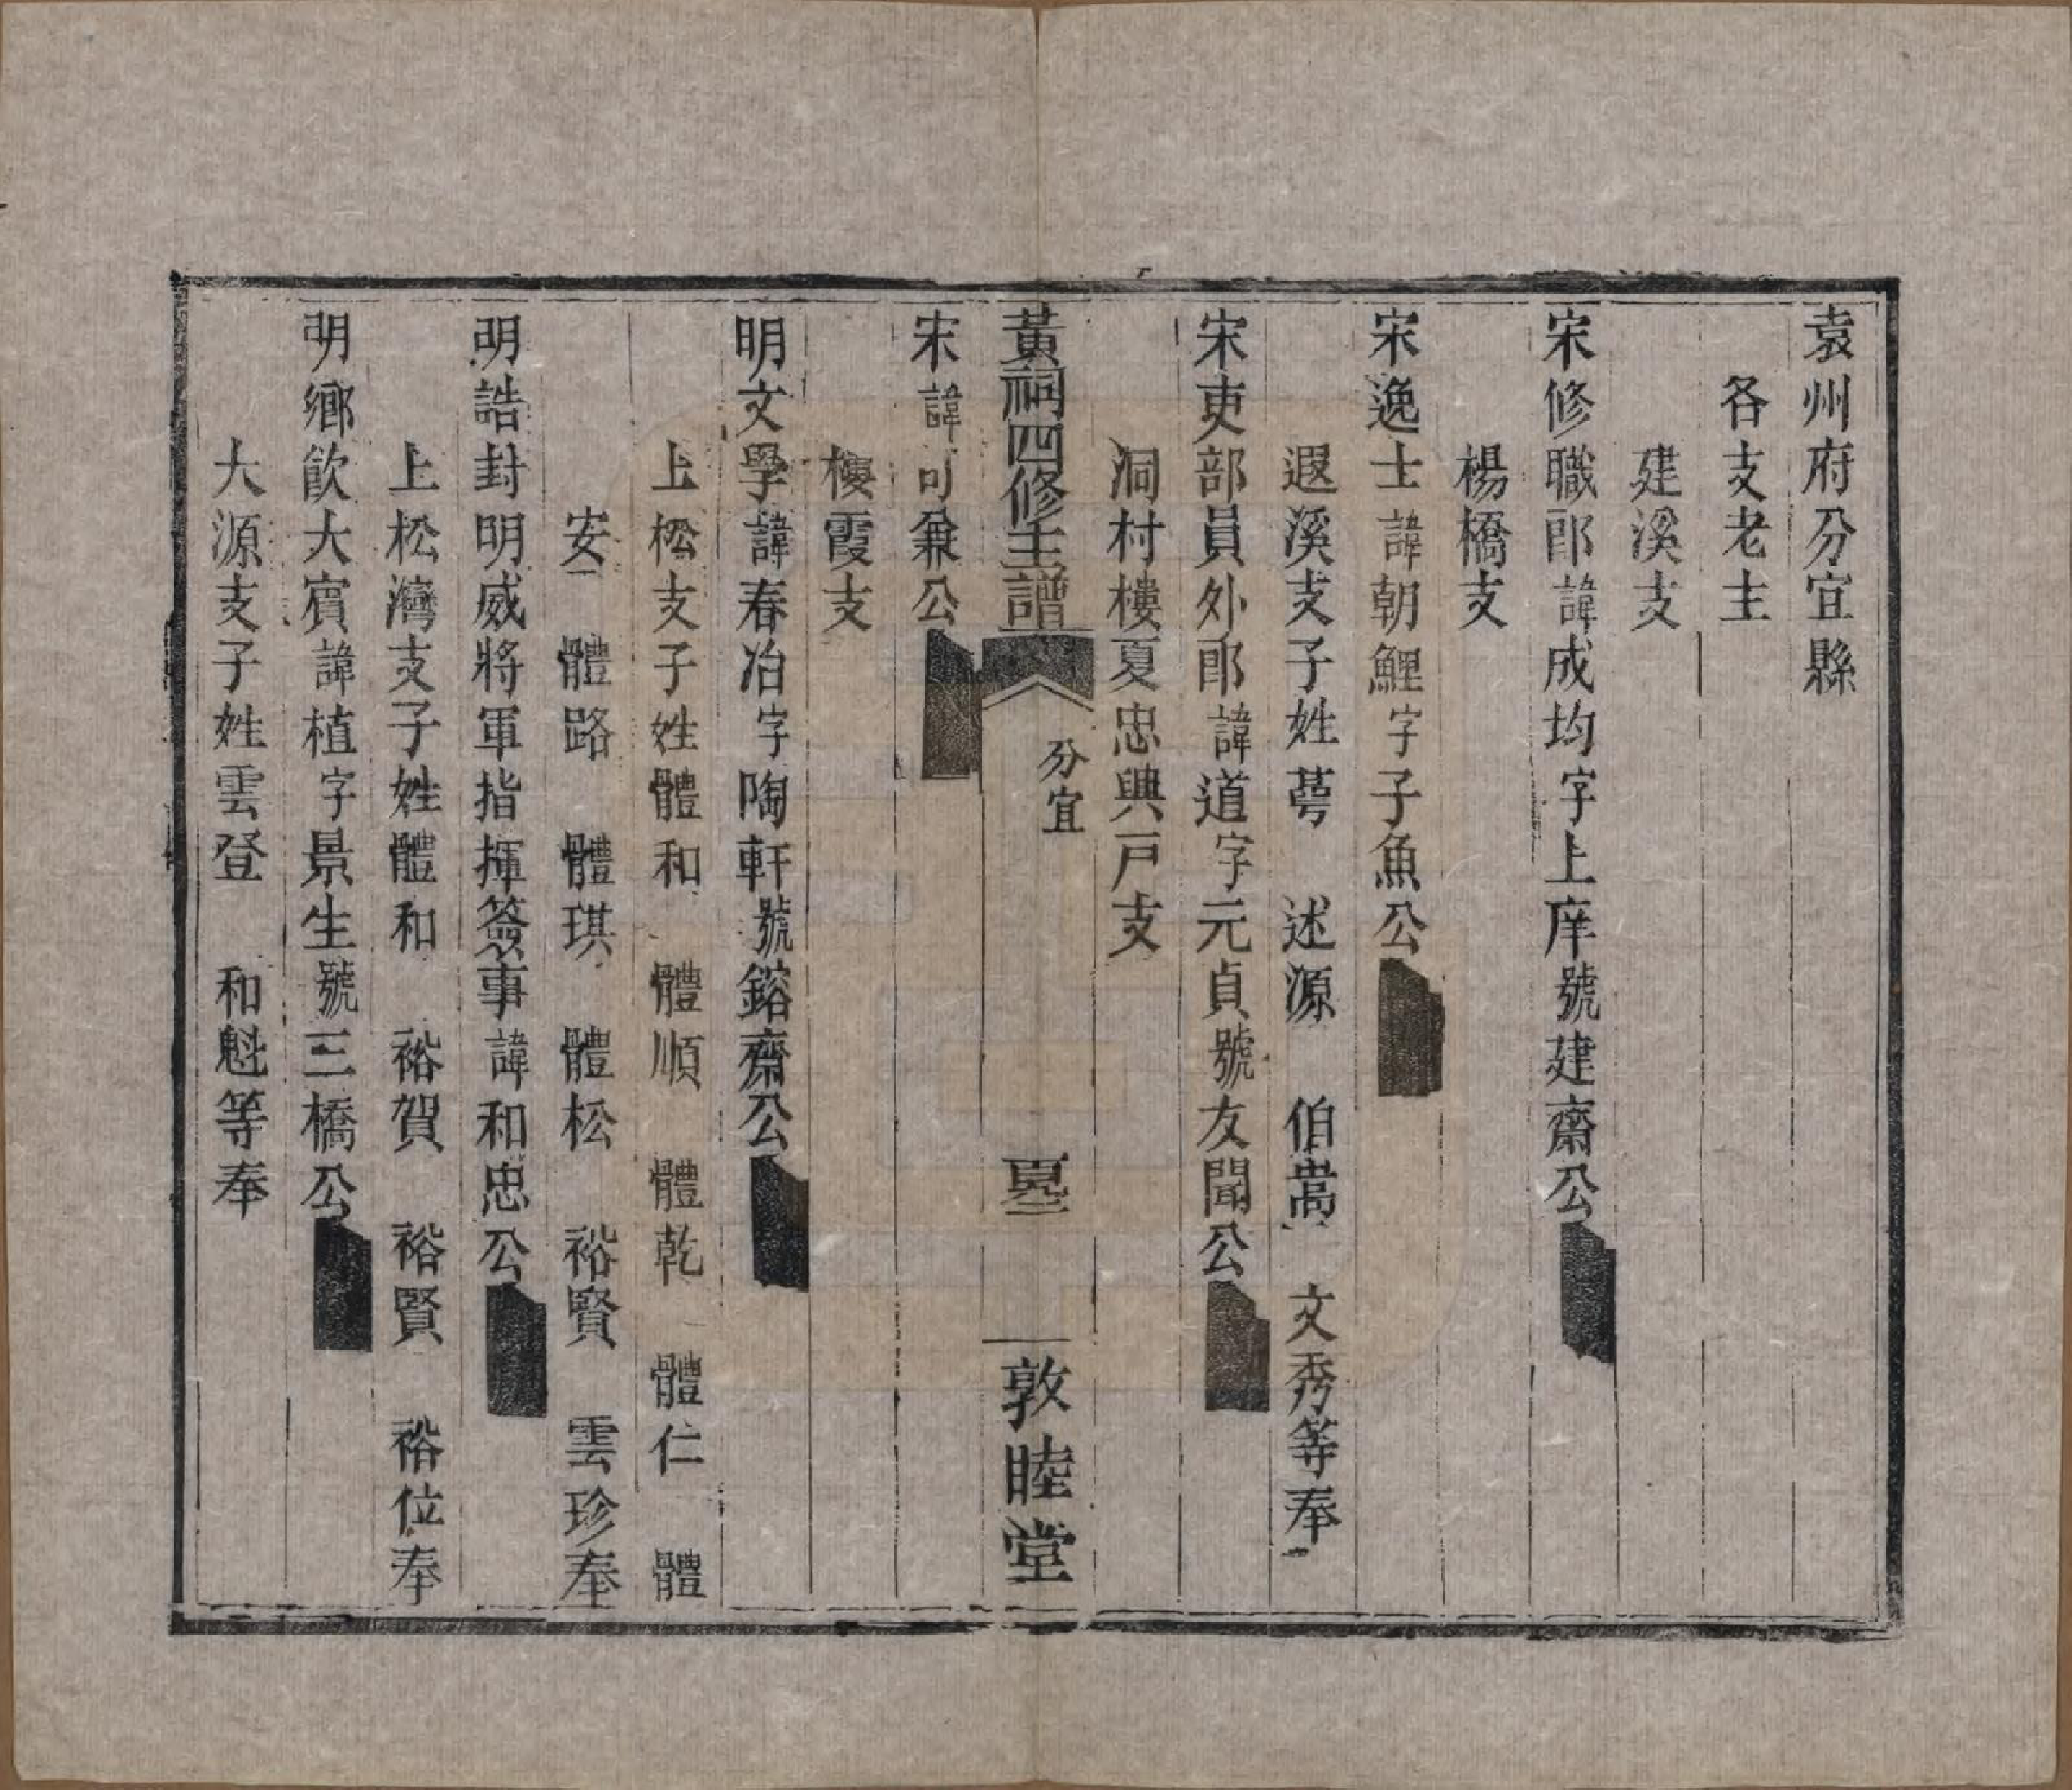 袁州府分宜縣
各支老主
建溪支
宋修職郎諱成均字上庠號建齋公
楊橋支
宋逸士諱朝鯉字子魚公
遐溪支子姓蕚 述源 伯嵩 文秀等奉
宋吏部員外郎諱道字元貞號友聞公
洞村樓夏忠興戸支
黃祠四修主譜
分宜
敦睦堂
宋諱可兼公
樓霞支
明文學諱春冶字陶軒號鎔齋公
上松支子姓體和 體順 體乾 體仁 體
安 體路 體琪 體松 裕賢 雲珍奉
明誥封明威將軍指揮簽事諱和忠公
上松灣支子姓體和 裕賀 裕賢 裕位奉
明鄉飲大賓諱植字景生號三橋公
大源支子姓雲登 和魁等奉